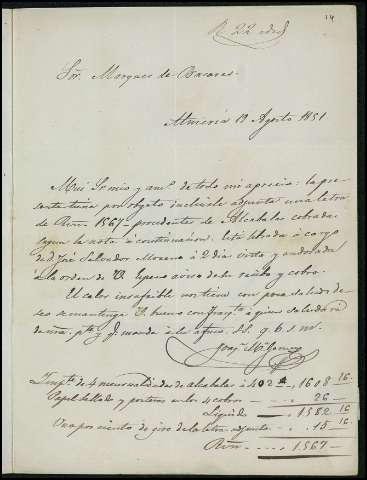 14
R. 22
Sor. Marques de Bacares.
Almeria 19 Agosto 1851
Mui Sr mio y am.º de todo mi aprecio: la pre-
sente tiene por objeto incluirle adjunta una letra
de Rvn. 1567 - procedentes de Alcabalas cobradas
segun la nota a continuacion. Está librada à cargo
de D. José Salvador Moreno à 2 dias vista y endosada
à la orden de V. espero aviso de su recibo y cobro.
El calor insufrible nos tiene con poca de
seo se mantenga V. bueno con
y mandar à su afmo. s.s. q. b. s. m.
Importe de 4 mensualidades de alcabalas à 402 " 1608 16
Papel sellado y porteros en los 4 cobros 26 "
Liquido 1582 16
Uno por ciento de giro de la letra adjunta 15 16
Rvn 1567 "